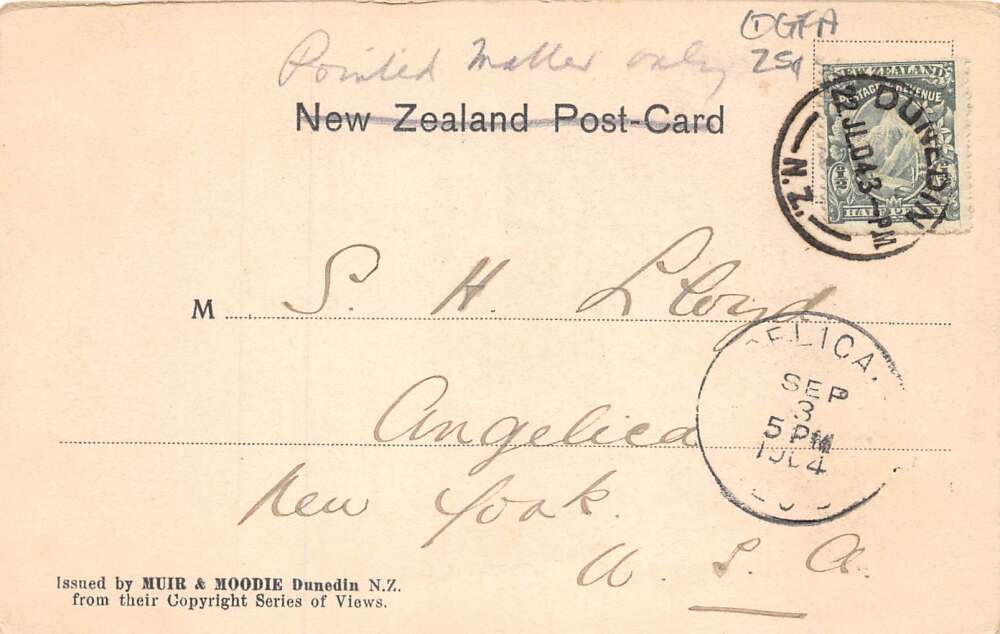 DGFA
25
Printed Matter only
New Zealand Post-Card
ZEALAND
POSTAGE & REVENUE
HALF
DUNEDIN
22 JL 04 3-PM
N.Z.
M S. H. Lloyd
Angelica
New York.
U. S. A.
ELICA.
SEP
3
5 PM
1904
Issued by MUIR & MOODIE Dunedin N.Z.
from their Copyright Series of Views.